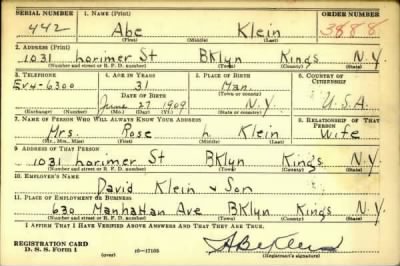 SERIAL NUMBER 1. NAME (Print) ORDER NUMBER
442 Abe Klein 3888
(First) (Middle) (Last)
2. ADDRESS (Print)
1031 Lorimer St BKlyn Kings N.Y.
(Number and street or R. F. D. number) (Town) (County) (State)
3. TELEPHONE 4. AGE IN YEARS 5. PLACE OF BIRTH 6. COUNTRY OF CITIZENSHIP
Ev4-6300 31 Man.
DATE OF BIRTH (Town or county)
June 27 1909 N.Y. U.S.A.
(Exchange) (Number) (Mo.) (Day) (Yr.) (State or country)
7. NAME OF PERSON WHO WILL ALWAYS KNOW YOUR ADDRESS 8. RELATIONSHIP OF THAT PERSON
Mrs. Rose L Klein Wife
(Mr., Mrs., Miss) (First) (Middle) (Last)
9. ADDRESS OF THAT PERSON
1031 Lorimer St BKlyn Kings N.Y.
(Number and street or R. F. D. number) (Town) (County) (State)
10. EMPLOYER'S NAME
David Klein & Son
11. PLACE OF EMPLOYMENT OR BUSINESS
630 Manhattan Ave BKlyn Kings N.Y.
(Number and street or R. F. D. number) (Town) (County) (State)
I AFFIRM THAT I HAVE VERIFIED ABOVE ANSWERS AND THAT THEY ARE TRUE.
REGISTRATION CARD
D. S. S. Form 1 (over) 16-17105 (Registrant's signature)